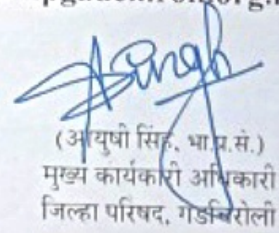 Singh
(आयुषी सिंह, भा.प्र.से.)
मुख्य कार्यकारी अधिकारी
जिल्हा परिषद, गडचिरोली